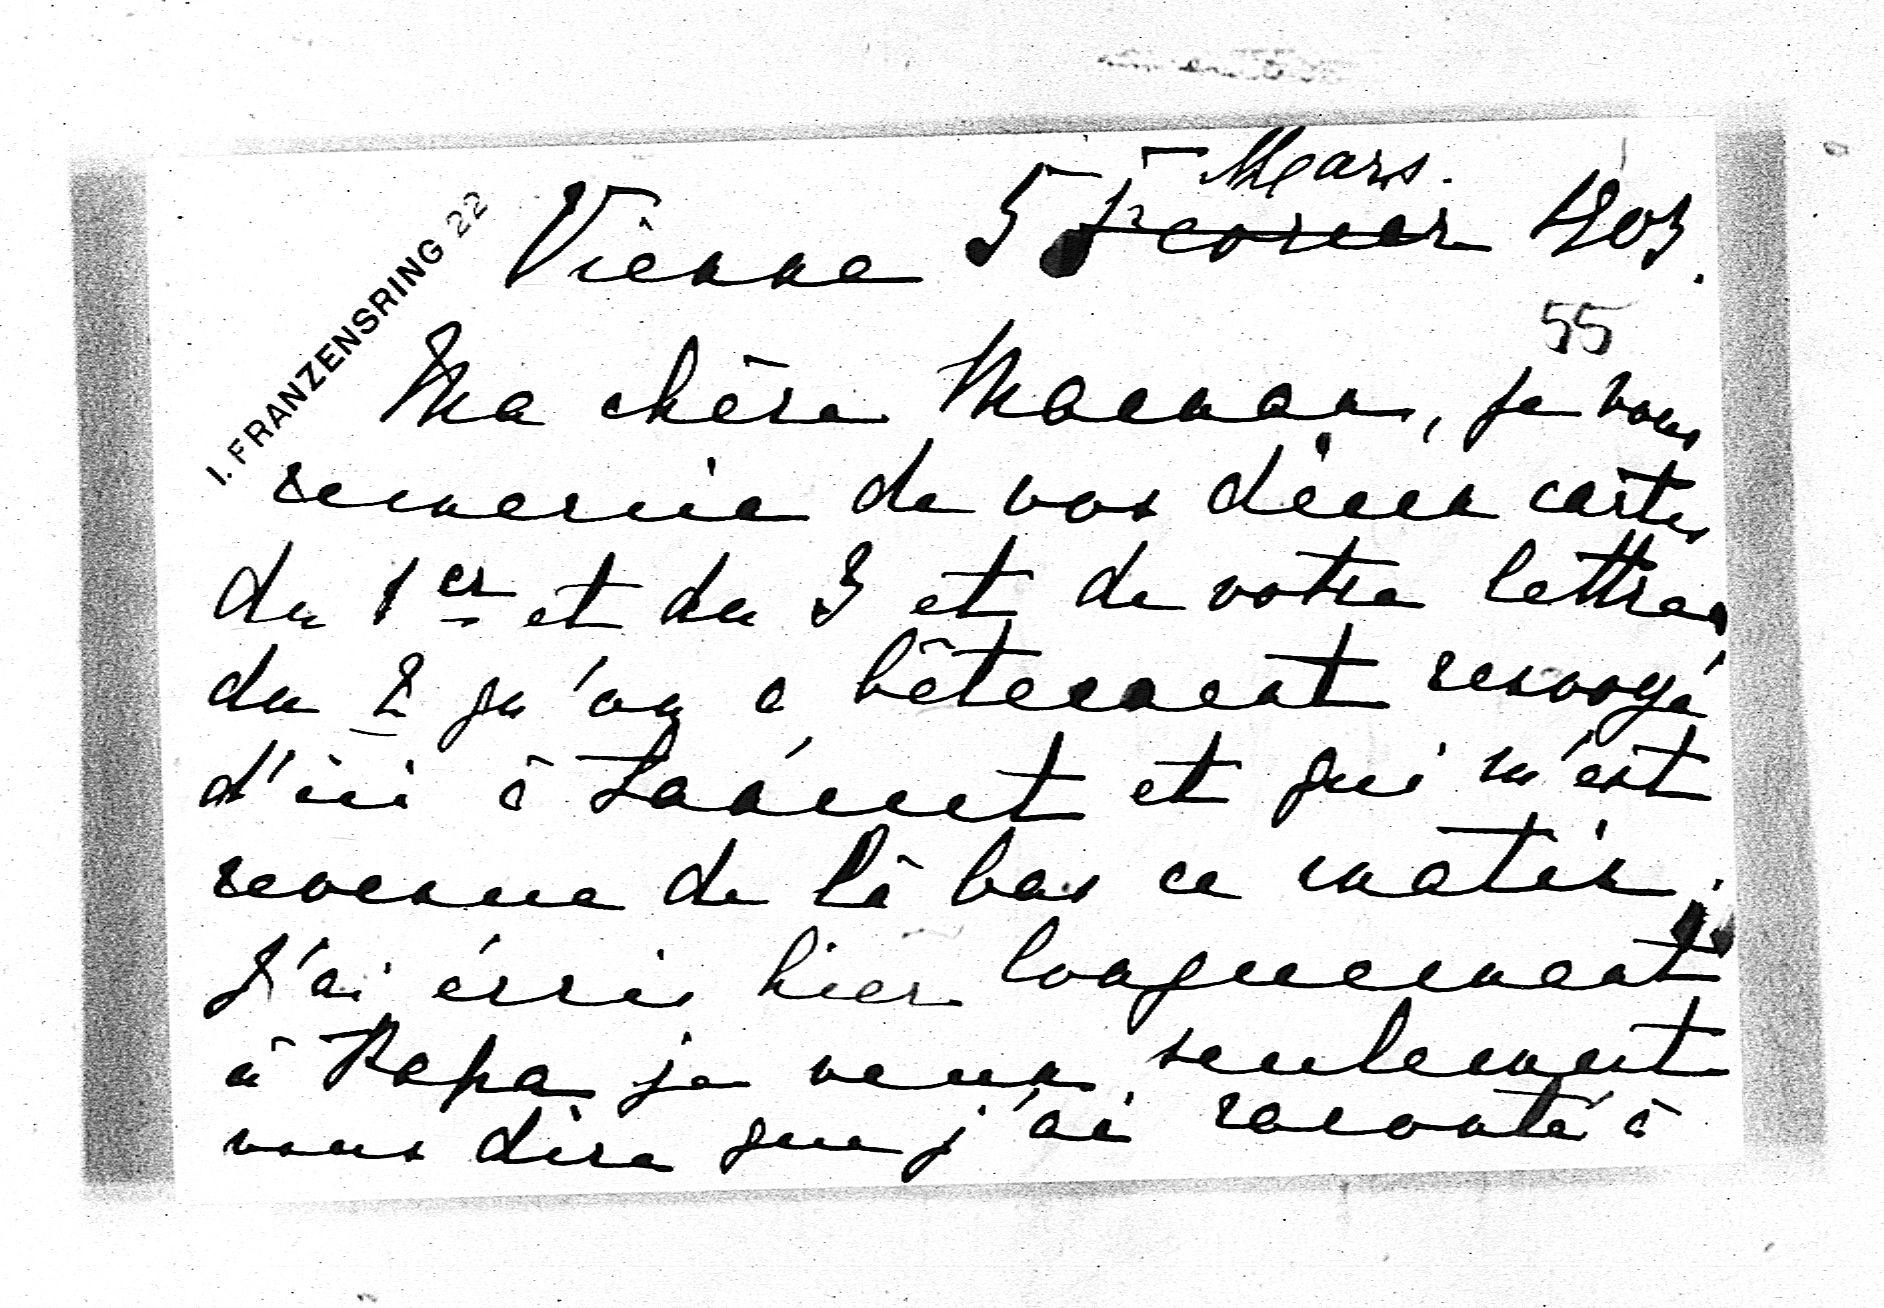 I. FRANZENSRING 22
Vienne 5 Fevrier Mars. 1903.
55
Ma chère Maman, je vous
remercie de vos deux cartes
du 1er et du 3 et de votre lettre
du 2 qu'on a bêtement renvoyé
d'ici à Lancut et qui m'est
revenue de là bas ce matin.
J'ai écris hier longuement
à Papa je veux seulement
vous dire que j'ai raconté à